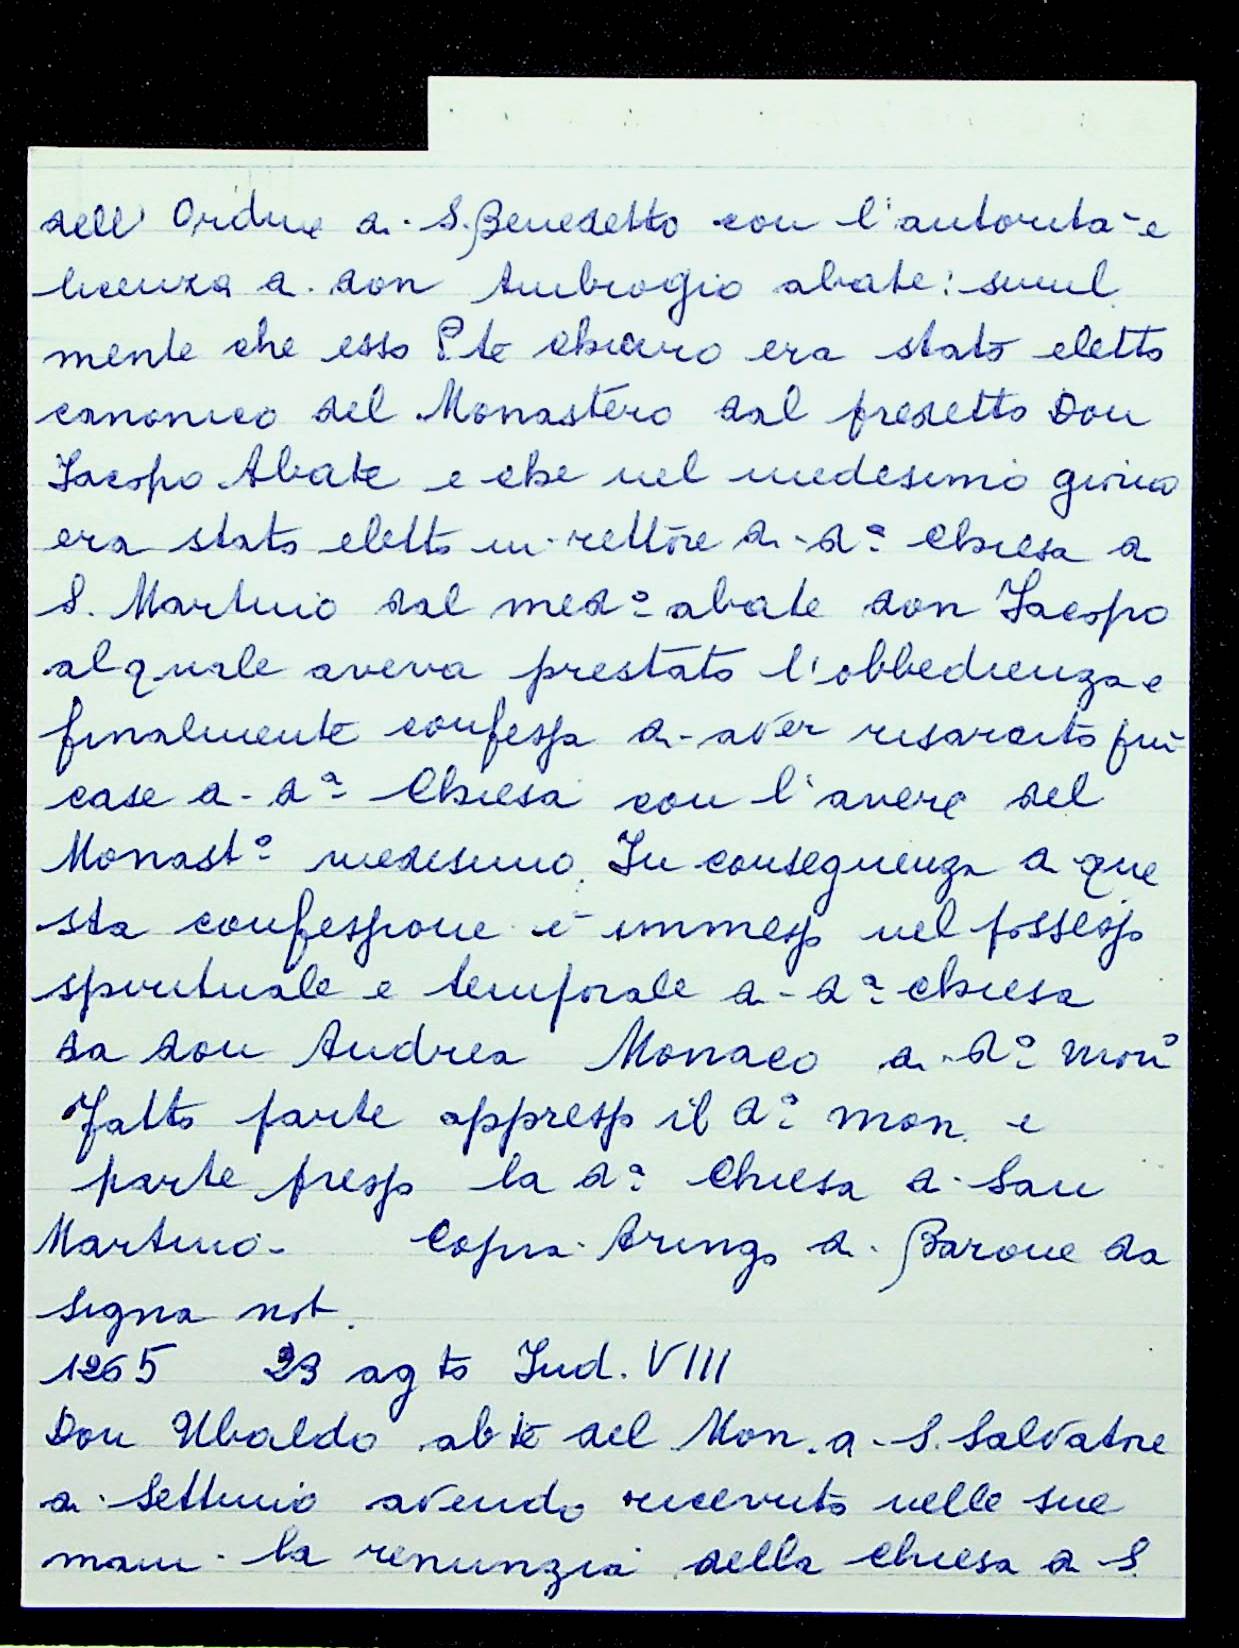 dell'Ordine di S. Benedetto con l'autorità e
licenza di don Ambrogio abate: simil
mente che esso Pte Chiaro era stato eletto
canonico del Monastero dal predetto Don
Jacopo Abate e che nel medesimo giorno
era stato eletto in rettore di dª Chiesa di
S. Martino dal medº abate don Jacopo
al quale aveva prestato l'obbedienza e
finalmente confessa di aver risarcito più
case di dª Chiesa con l'avere del
Monastº medesimo. In conseguenza di que
sta confessione è immesso nel possesso
spirituale e temporale di dª chiesa
da don Andrea Monaco di dº monº
fatto parte appresso il dº mon. e
parte presso la dª Chiesa di San
Martino - Copia Aringo di Barone da
Signa not.
1265 23 agto Ind. VIII
Don Ubaldo abte del Mon. di S. Salvatore
di Settimo avendo ricevuto nelle sue
mani la renunzia della chiesa di S.